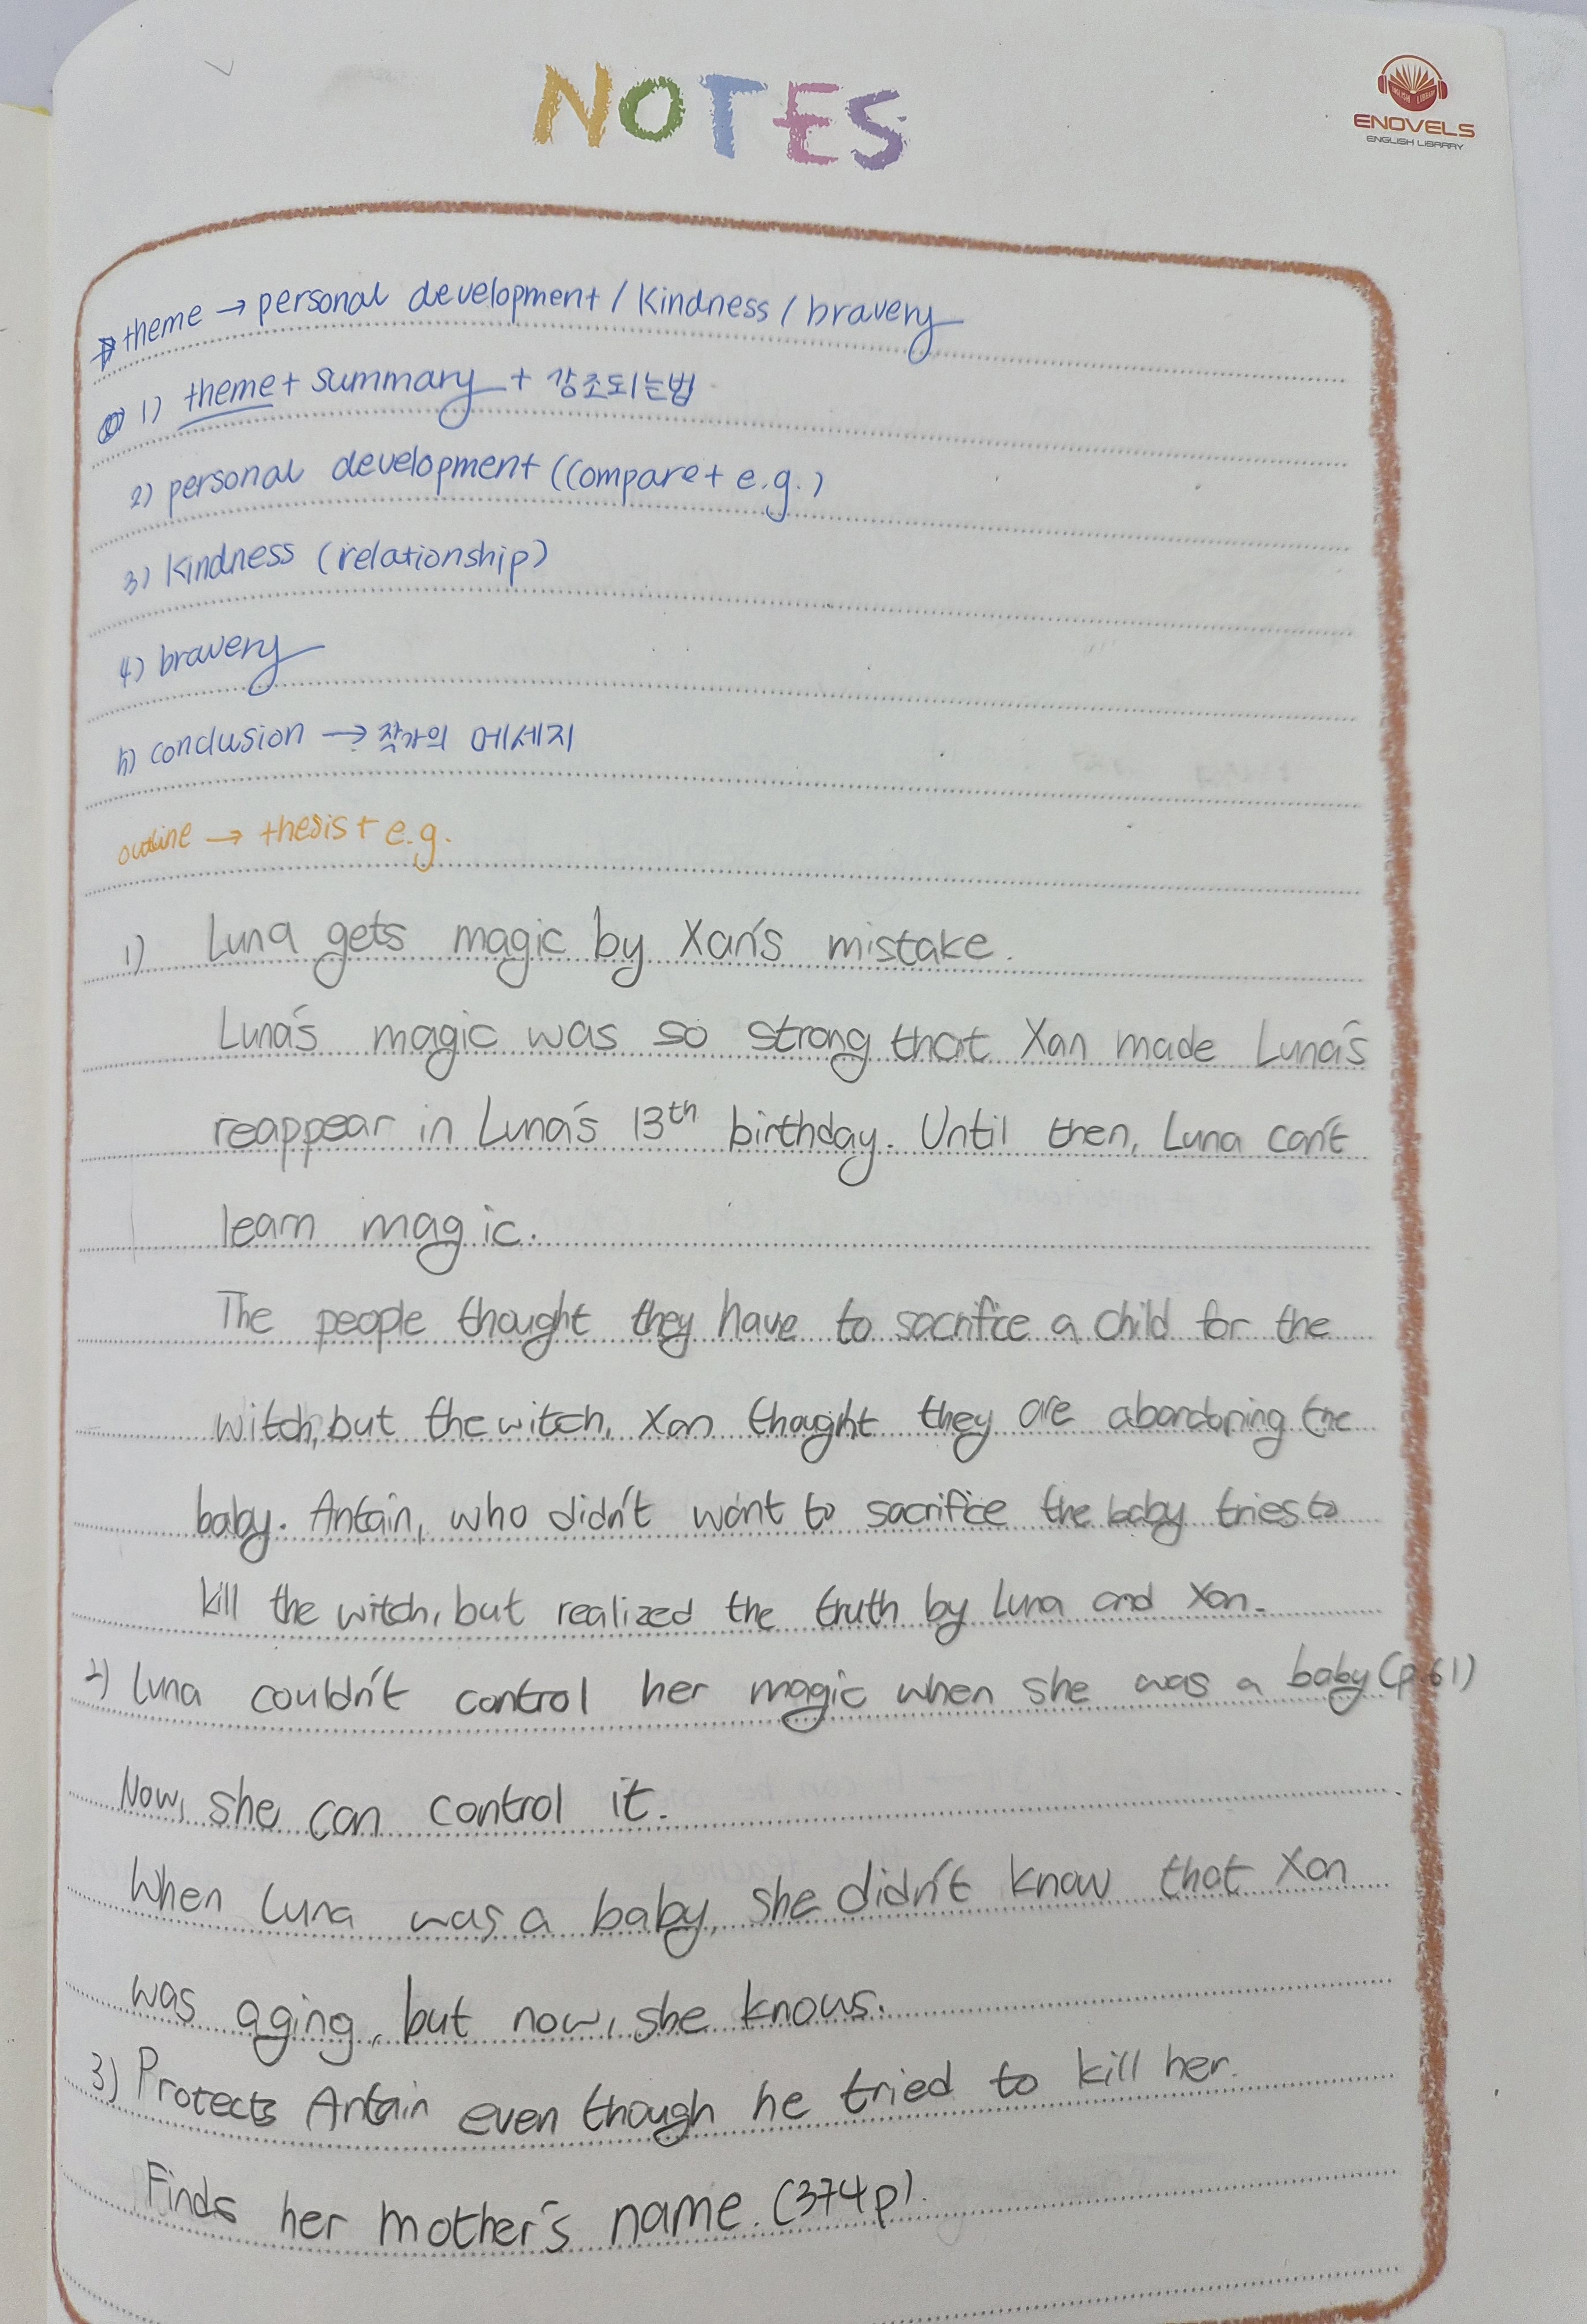 NOTES
ENOVELS
ENGLISH LIBRARY
theme → personal development / kindness / bravery
1) theme + summary + 강조되는법
2) personal development (compare + e.g.)
3) kindness (relationship)
4) bravery
5) conclusion → 작가의 메세지
outline → thesis + e.g.
1) Luna gets magic by Xan's mistake.
Luna's magic was so strong that Xan made Luna's
reappear in Luna's 13th birthday. Until then, Luna can't
learn magic.
The people thought they have to sacrifice a child for the
witch, but the witch, Xan thought they are abandoning the
baby. Antain, who didn't want to sacrifice the baby tries to
kill the witch, but realized the truth by Luna and Xan.
2) Luna couldn't control her magic when she was a baby (p.61)
Now, she can control it.
When Luna was a baby, she didn't know that Xan
was aging, but now, she knows.
3) Protects Antain even though he tried to kill her.
Finds her mother's name. (374p).